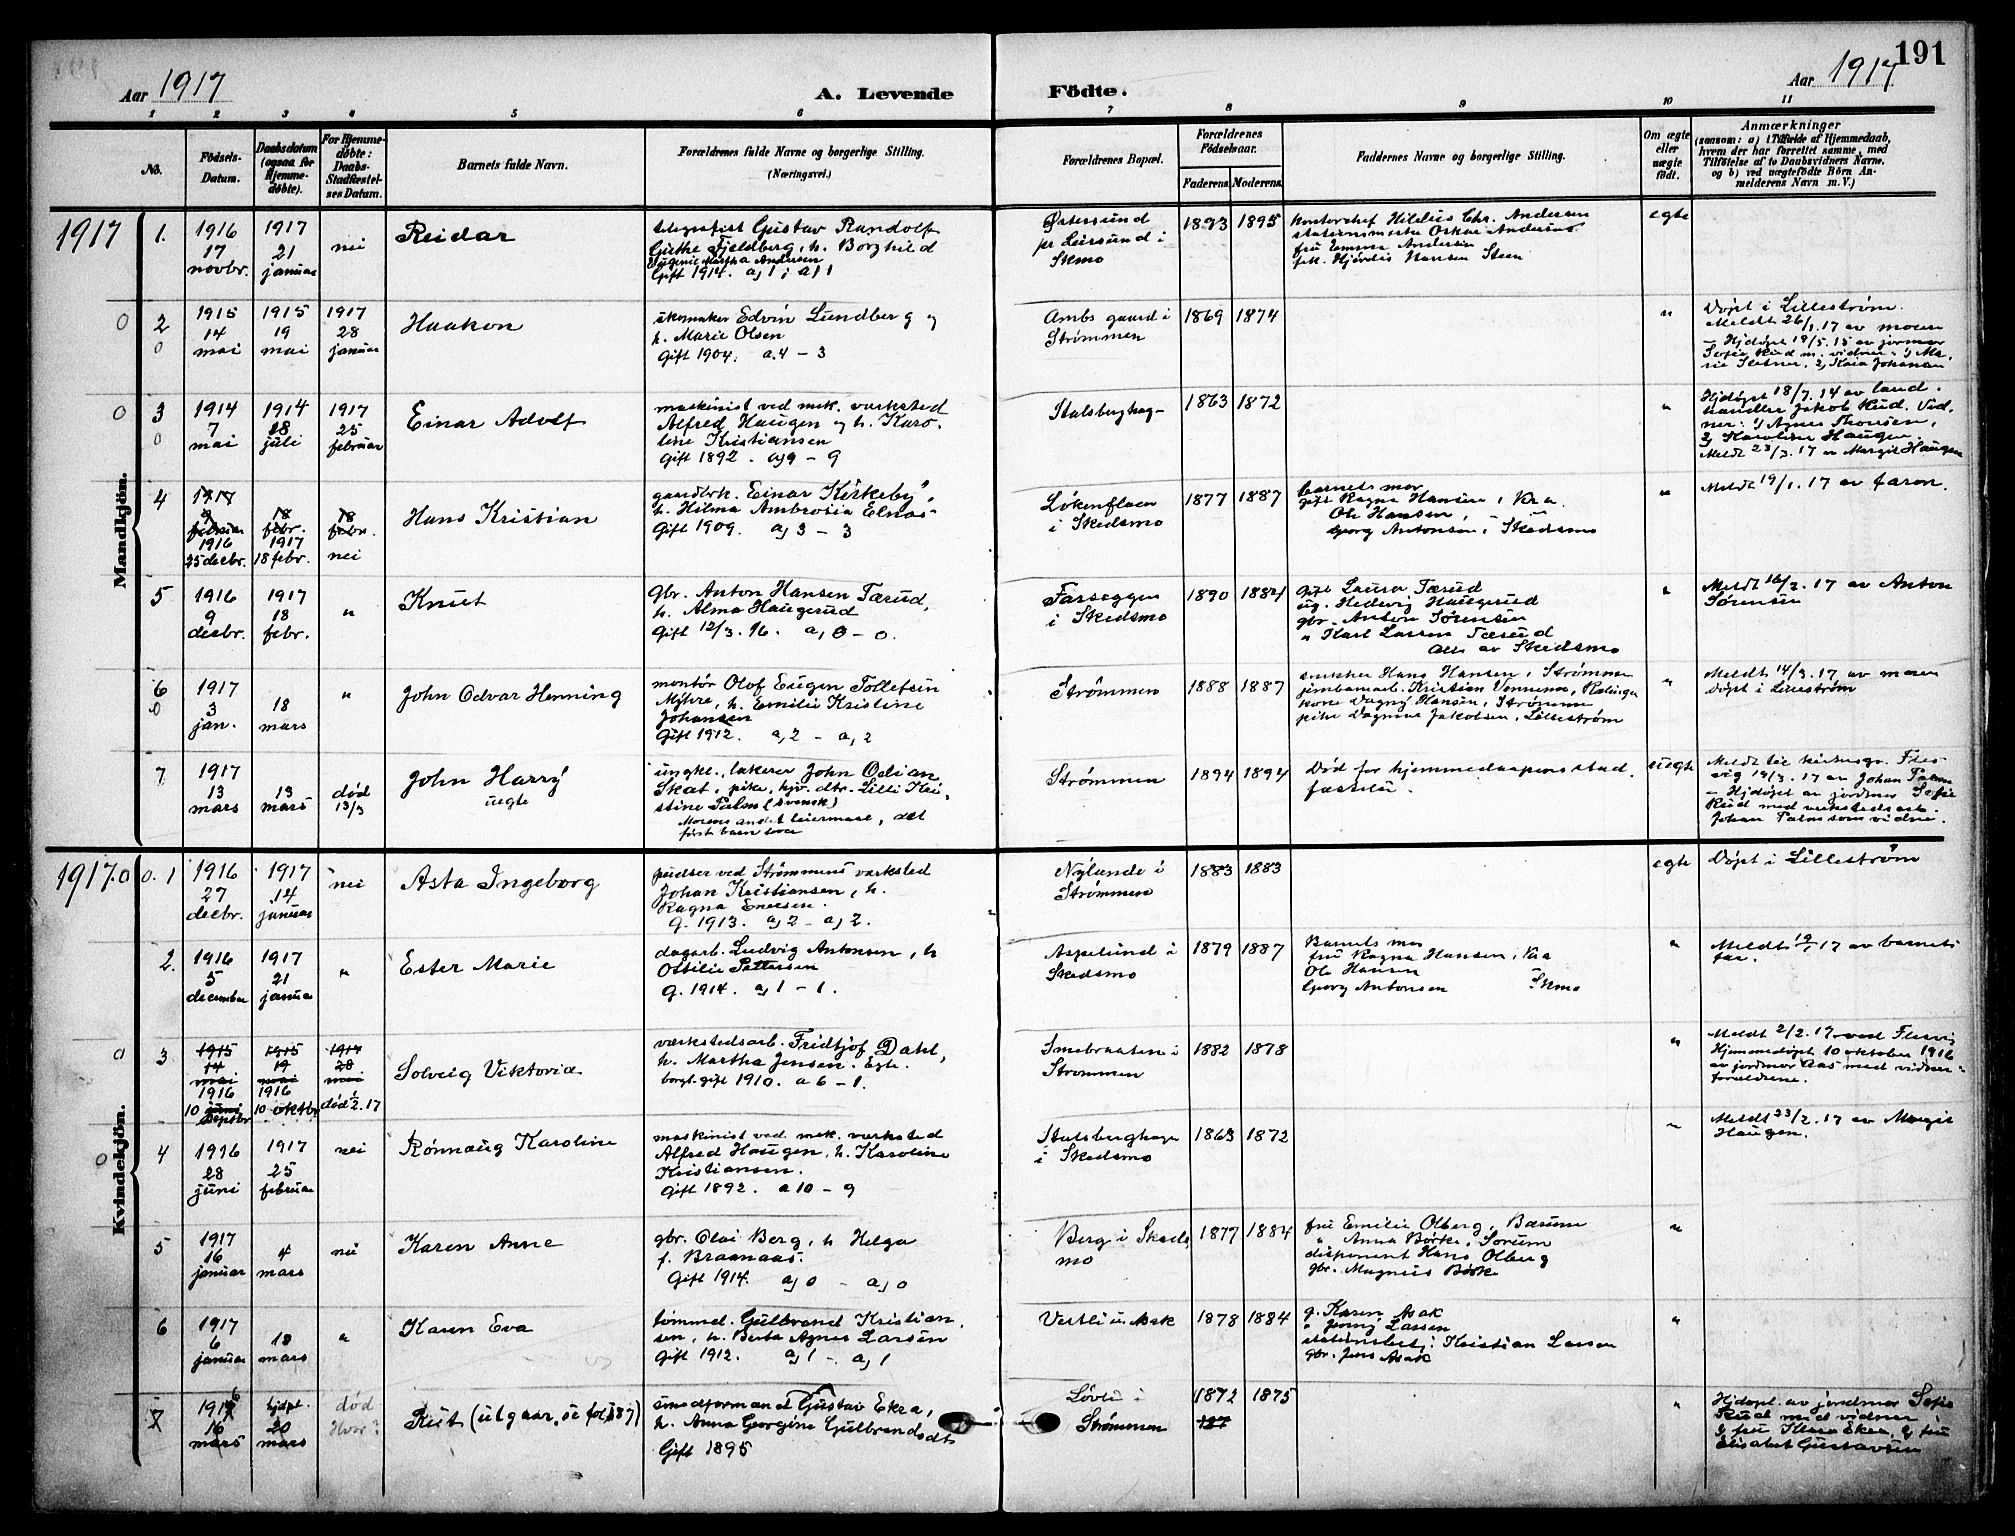 191
Aar 1917
A. Levende
Födte.
Aar 1917
1 2 3 4 5 6 7 8 9 10 11
No.
Födsels-
Datum.
Daabsdatum
(ogsaa for
Hjemme-
döbte).
For Hjemme-
döbte:
Daabs-
Stadfæstel-
ses Datum.
Barnets fulde Navn.
Forældrenes fulde Navne og borgerlige Stilling.
(Næringsvei.)
Forældrenes Bopæl.
Forældrenes
Födselsaar.
Faderens. Moderens.
Faddernes Navne og borgerlige Stilling.
Om ægte
eller
uægte
födt.
Anmærkninger
(saasom: a) i Tilfælde af Hjemmedaab,
hvem der har forrettet samme, med
Tilföielse af to Daabsvidners Navne,
og b) ved uægtefödte Börn An-
melderens Navn m. V.)
Mandkjön.
1917
1.
1916
17
novbr.
1917
21
januar
nei
Reidar
telegrafist Gustav Randolf
Guthe Fjeldberg, h. Borghild
Eugenie Martha Andersen
Gift 1914. a) 1 ; a) 1
Østersund
pr Leirsund i
Skmo
1893 1895
kontorchef Hildus Chr. Andersen
stationsmester Oskar Andersen
fru Emma Andersen
frk. Hjørdis Hansen Steen
egte
2
1915
14
mai
1915
19
mai
1917
28
januar
Haakon
skomaker Edvin Lundberg og
h. Marie Olsen
Gift 1904. a. 4 - 3
Ambs gaard i
Strømmen
1869 1874
"
Døpt i Lillestrøm.
Meldt 26/1.17 av moren
- Hjdøpt 19/5.15 av jormor
Sofie Rud m. vidner: 1) Ma-
rie Sletner, 2) Kaia Johansen
3
1914
7
mai
1914
18
juli
1917
25
februar
Einar Adolf
maskinist ved mek. verksted
Alfred Haugen og h. Karo-
line Kristiansen
Gift 1892. a) 9 - 9
Stalsberghag-
1863 1872
"
Hjdøpt 18/7.14 av land-
handler Jakob Rud. Vid-
ner: 1) Agnes Thorsen,
2) Karoline Haugen.
Meldt 23/2.17 av Margit Haugen
4
1917
9
februar
1916
25 decbr.
18
febr.
1917
18 febr.
18
febr.
nei
Hans Kristian
gaardbrk. Einar Kirkeby,
h. Hilma Ambrosia Elnes-
Gift 1909. a) 3 - 3
Løkenflaen
i Skedsmo
1877 1887
barnets mor
gift Ragna Hansen, Kra
Ole Hansen,
Georg Antonsen, Skedsmo
"
Meldt 19/1.17 av faren.
5
1916
9
decbr.
1917
18
febr.
"
Knut
gbr. Anton Hansen Tærud,
h. Alma Haugerud
Gift 12/3.16. a) 0 - 0.
Farseggen
i Skedsmo
1890 1884
gift Laura Tærud
ug. Hedevig Haugerud
gbr. Anton Sørensen
" Karl Larsen Tærud
Alle av Skedsmo
"
Meldt 16/2.17 av Anton
Sørensen
6
1917
3
jan.
18
mars
"
John Odvar Henning
montør Olof Eugen Tollefsen
Myhre, h. Emilie Kristine
Johansen
Gift 1912. a) 2 - a) 2
Strømmen
1888 1887
snekker Hans Hansen, Strømmen
jernbanearb. Kristian Vennemo, Rælingen
kone Dagny Hansen, Strømmen
pike Dagmar Jakobsen, Lillestrøm
"
Meldt 14/3.17 av moren
døpt i Lillestrøm
7
1917
13
mars
13
mars
død
13/3
John Harry
uegte
ungk., lakerer John Odian
Skat, pike, hjv. dtr. Lilli Kri-
stine Palm (svensk)
Morens andet leiermaal, det
første barn
Strømmen
1894 1894
Død før hjemmedaapens stad-
fæstelse.
uegte
Meldt til kirkesgr. Fles-
vig 19/3.17 av Johan Palm
- Hjdøpt av jordmor Sofie
Rud med verkstedsarb.
Johan Palm som vidne.
Kvindekjön.
1917
1
1916
27
decbr.
1917
14
januar
nei
Asta Ingeborg
pudser ved Strømmens verksted
Johan Kristiansen, h.
Ragna Enersen.
G. 1913. a) 2 - a) 2.
Nylande i
Strømmen
1883 1883
egte
Døpt i Lillestrøm
2.
1916
5
december
1917
21
januar
"
Ester Marie
dagarb. Ludvig Antonsen, h
Ottilie Pettersen
G. 1914. a) 1 - 1.
Aspelund i
Skedsmo
1879 1887
Barnets mor
fru Ragna Hansen, Kra
Ole Hansen
Georg Antonsen Skmo
"
Meldt 19/1.17 av barnets
far.
3
1915
14
mai
1916
10 juni
septbr
1915
19
mai
1916
10 oktbr.
1917
28
mai
død 1/2.17
Solveig Viktoria
verkstedsarb. Fridtjof Dahl,
h. Martha Jensen. Egte.
borgl. gift 1910. a 6 - 1.
Smebraaten i
Strømmen
1882 1878
"
Meldt 2/2.17 ved Flesvig
Hjemmedøpt 10 oktober 1916
av jordmor Aas med vidner:
forældrene.
4
1916
28
juni
1917
25
februar
nei
Rønnaug Karoline
maskinist ved mek. verksted
Alfred Haugen, h. Karoline
Kristiansen.
Gift 1892. a 10 - 9
Stalsberghage
i Skedsmo
1863 1872
"
Meldt 23/2.17 av Margit
Haugen.
5
1917
16
januar
4
mars
nei
Karen Anne
gbr. Olai Berg, h Helga
f. Braanaas.
Gift 1914. a) 0 - a) 0
Berg i Skeds
mo
1877 1884
fru Emilie Olberg, Bærum
" Anna Børke, Sørum
disponent Hans Olberg
gbr. Magnus Børke
"
6
1917
6
januar
18
mars
"
Karen Eva
tømmel. Gulbrand Kristian-
sen, h. Berta Agnes Larsen
Gift 1912. a) 1 - a) 1
Vestli u. Asak
1878 1884
g. Karen Asak
" Jenny Larsen
stationsbetj. Kristian Larsen
gbr. Jens Asak
"
7
1916
16
mars
hjdpt.
20
mars
død
Hvor?
Rut (utgaar, se fol. 187)
smedformand Gustav Ekra,
h. Anna Georgine Gulbrandsdt
Gift 1895
Løvli i
Strømmen
1872 1875
187
"
Hjdøpt av jordmor Sofie
Rud med vidner
1) fru Klara Ekra, 2) fru
Elisabet Gustavsen